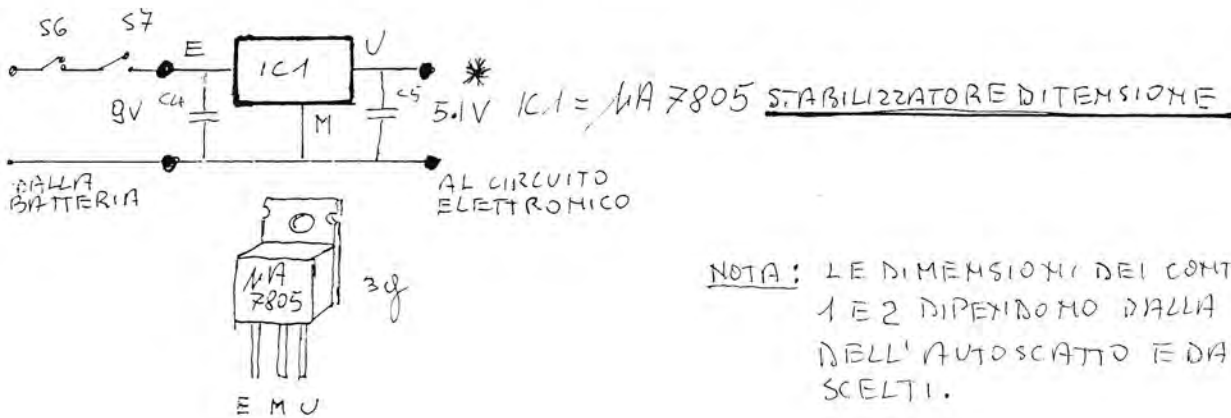 S6 S7
E IC1 U
9V C4 M C5 5.1V IC1 = µA 7805 STABILIZZATORE DI TENSIONE
DALLA
BATTERIA
AL CIRCUITO
ELETTRONICO
µA
7805
3g
E M U
NOTA: LE DIMENSIONI DEI CONT
1 E 2 DIPENDONO DALLA
DELL'AUTOSCATTO E DA
SCELTI.